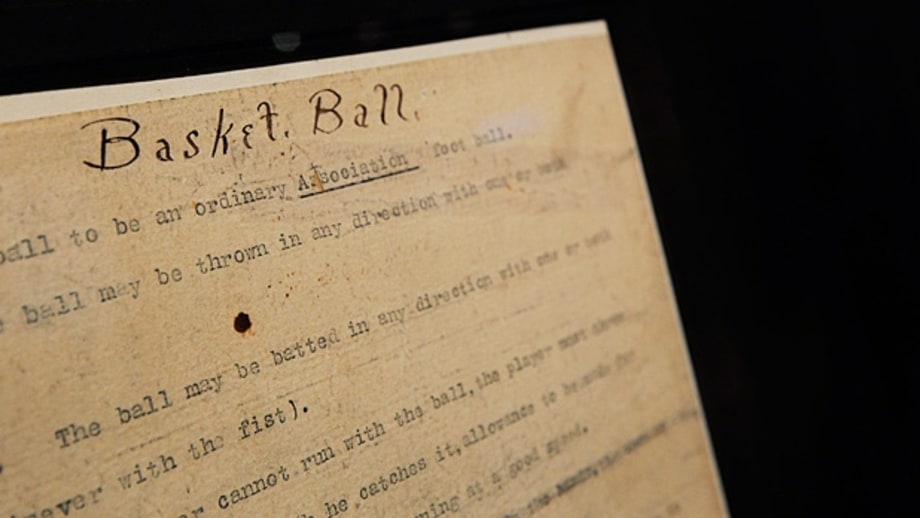 Basket. Ball.
ball to be an ordinary Association foot ball.
ball may be thrown in any direction with one or both
The ball may be batted in any direction with one or both
with the fist).
cannot run with the ball, the player must throw
he catches it, allowance to be made for
at a good speed.